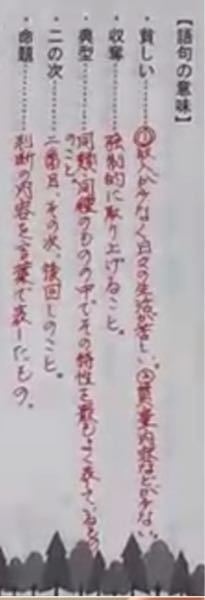 【語句の意味】
・貧しい……①収入が少なく日々の生活が苦しい。②質量内容などが少ない。
・収奪……強制的に取り上げること。
・典型……同類、同種のものの中でその特性を最もよく表している
のこと。
・二の次……二番目、その次、後回しのこと。
・命題……判断の内容を言葉で表したもの。